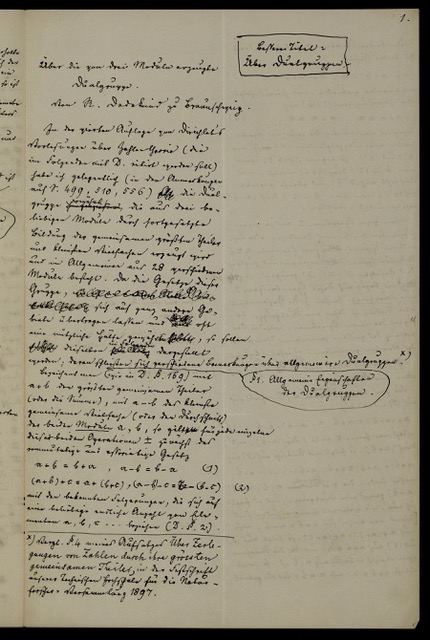 1.
Besserer Titel:
Über Dualgruppen.
Über die von drei Moduln erzeugte
Dualgruppe.
Von R. Dedekind in Braunschweig.
In der vierten Auflage von Dirichlet's
Vorlesungen über Zahlentheorie (die
im Folgenden mit D. citirt werden soll)
habe ich gelegentlich (in den Anmerkungen
auf S. 499, 510, 556) die Dual-
gruppe die aus drei be-
liebigen Moduln durch fortgesetzte
Bildung der gemeinsamen größten Theiler
und kleinsten Vielfachen erzeugt wird
und im Allgemeinen aus 28 verschiedenen
Moduln besteht. Da die Gesetze dieser
Gruppe,
sich auf ganz andere Ge-
biete übertragen lassen und oft
eine nützliche Hülfe, so sollen
dieselben dargestellt
werden; Bemerkungen über allgemeinere Dualgruppen. *)
§1. Allgemeine Eigenschaften
der Dualgruppen.
Bezeichnet man (wie in D. §. 169) mit
a+b den größten gemeinsamen Theiler
(oder die Summe), mit a-b das kleinste
gemeinsame Vielfache (oder den Durchschnitt)
der beiden Moduln a, b, so gilt für jede einzelne
dieser beiden Operationen ± zunächst das
commutative und associative Gesetz
a+b = b+a, a-b = b-a (1)
(a+b)+c = a+(b+c), (a-b)-c = a-(b-c) (2)
mit den bekannten Folgerungen, die sich auf
eine beliebige endliche Anzahl von Ele-
menten a, b, c ... beziehen (D. §. 2).
*) Vergl. §.4 meines Aufsatzes Über Zerle-
gungen von Zahlen durch ihre grössten
gemeinsamen Theiler, in der Festschrift
unserer Technischen Hochschule für die Natur-
forscher-Versammlung 1897.